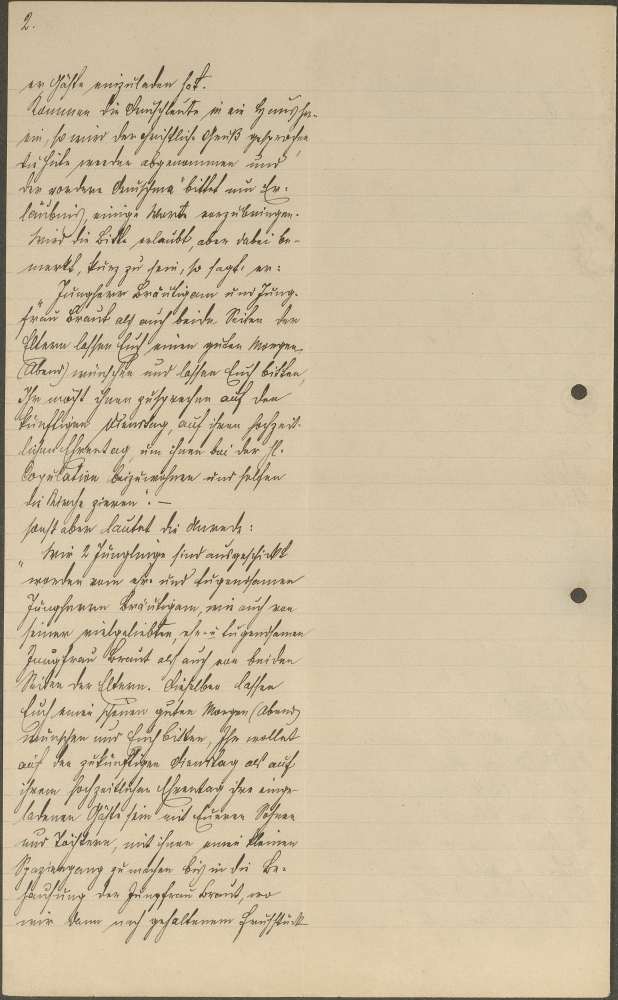 2.
er Gäste einzuladen hat.
Kommen die Anschleute in ein Haus her-
ein, so wird der christliche Gruß gesprochen,
die Hüte werden abgenommen und
der vordere "Anschme" bittet um Er-
laubnis, einige Worte vorzubringen.
Wird die Bitte erlaubt, aber dabei be-
merkt, kurz zu sein, so sagt er:
"Jungherr Bräutigam und Jung-
frau Braut als auch beide Seiten der
Eltern lassen Euch einen guten Morgen
(Abend) wünschen und lassen Euch bitten,
Ihr möcht ihnen zusprechen auf den
künftigen Dienstag, auf ihren hochzeit-
lichen Ehrentag, um ihnen bei der hl.
Copulation beizuwohnen und helfen
die Kirche zieren". —
sonst aber lautet die Anrede:
"Wir 2 Jünglinge sind ausgeschickt
worden vom ehr- und tugendsamen
Jungherrn Bräutigam, wie auch von
seiner vielgeliebten, ehr- u. tugendsamen
Jungfrau Braut als auch von beiden
Seiten der Eltern. Dieselben lassen
Euch einen schönen guten Morgen (Abend)
wünschen und Euch bitten, Ihr wollet
auf den zukünftigen Dienstag als auf
ihrem hochzeitlichen Ehrentag ihre einge-
ladenen Gäste sein mit Eueren Söhnen
und Töchtern, mit ihnen einen kleinen
Spaziergang zu machen bis in die Be-
hausung der Jungfrau Braut, wo
wir dann nach gehaltenem Frühstück